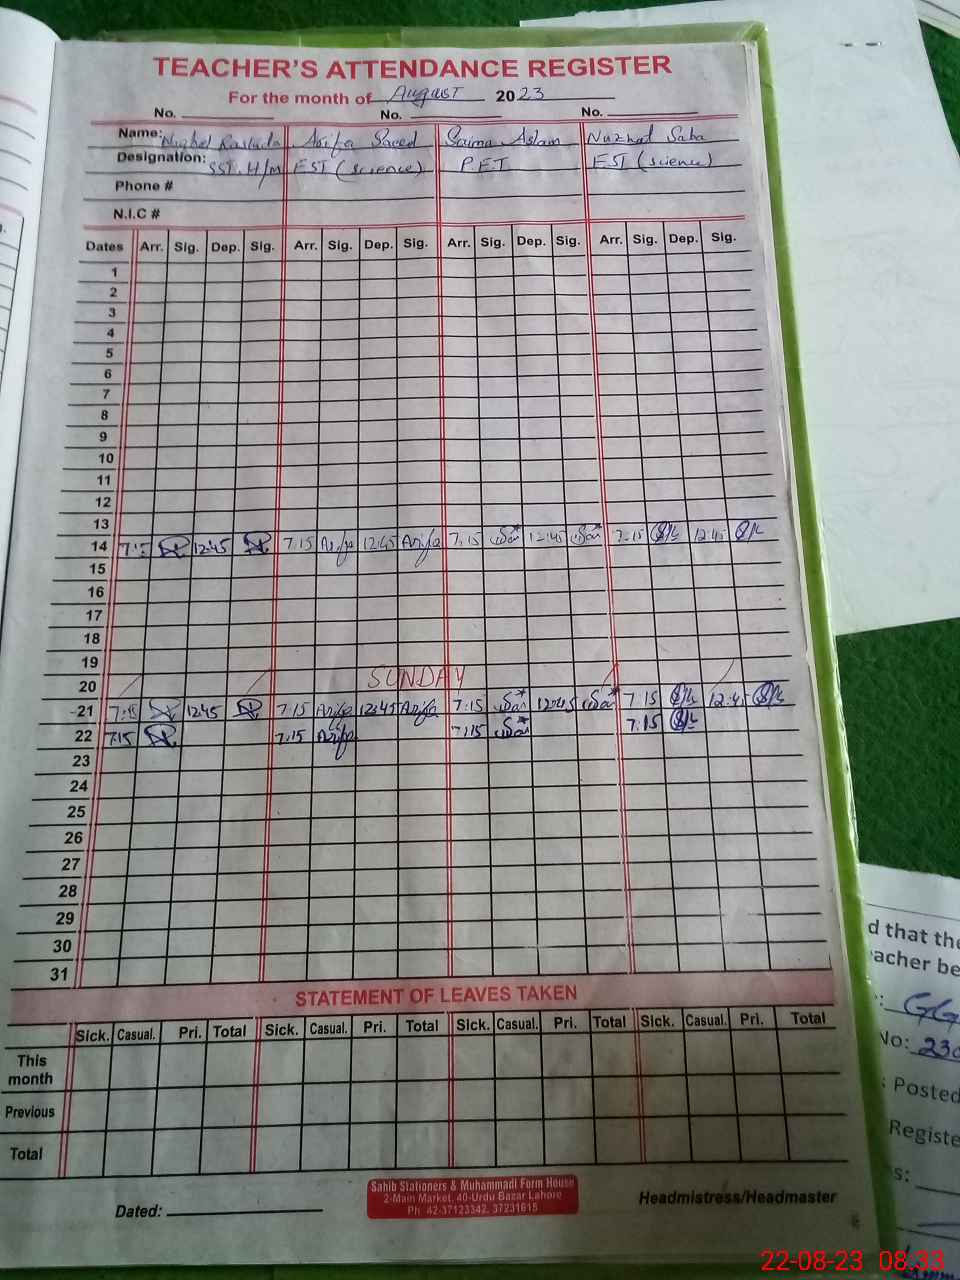 TEACHER'S ATTENDANCE REGISTER
For the month of August 2023
No. No. No.
Name: Arifa Saeed Saima Aslam Nuzhat Saba
Designation: SST. H/M EST (science) P.E.T EST (science)
Phone #
N.I.C #
Dates Arr. Sig. Dep. Sig. Arr. Sig. Dep. Sig. Arr. Sig. Dep. Sig. Arr. Sig. Dep. Sig.
1
2
3
4
5
6
7
8
9
10
11
12
13
14 7:15 12:45 7:15 Arifa 12:45 Arifa 7:15 12:45 7:15 12:45
15
16
17
18
19
20 SUNDAY
21 7:15 12:45 7:15 Arifa 12:45 Arifa 7:15 12:45 7:15 12:45
22 7:15 7:15 Arifa 7:15 7:15
23
24
25
26
27
28
29
30
31
STATEMENT OF LEAVES TAKEN
Sick. Casual. Pri. Total Sick. Casual. Pri. Total Sick. Casual. Pri. Total Sick. Casual. Pri. Total
This
month
Previous
Total
Dated:
Sahib Stationers & Muhammadi Form House
2-Main Market, 40-Urdu Bazar Lahore
Ph 42-37123342, 37231615
Headmistress/Headmaster
d that the
acher be
No: 230
Posted
Registe
s:
22-08-23 08:33